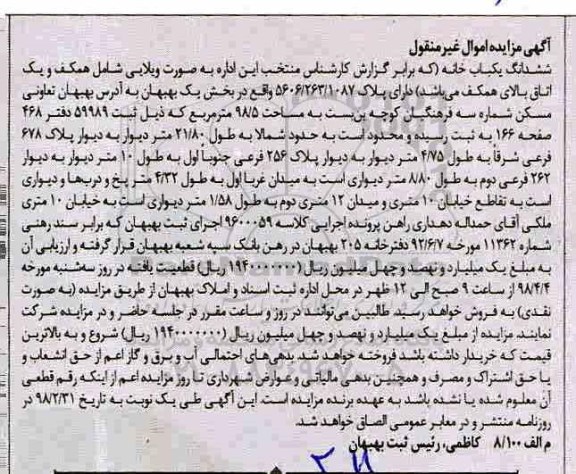 آگهی مزایده اموال غیر منقول
ششدانگ یکباب خانه (که برابر گزارش کارشناس منتخب این اداره به صورت ویلایی شامل همکف و یک
اتاق بالای همکف می‌باشد) دارای پلاک ۵۶۰۶/۲۶۳/۱۰۸۷ واقع در بخش یک بهبهان به آدرس بهبهان تعاونی
مسکن شماره سه فرهنگیان کوچه بن‌بست به مساحت ۹۸/۵ مترمربع که ذیل ثبت ۵۹۹۸۹ دفتر ۴۶۸
صفحه ۱۶۶ به ثبت رسیده و محدود است به حدود شمالا به طول ۲۱/۸۰ متر دیوار به دیوار پلاک ۶۷۸
فرعی شرقاً به طول ۴/۷۵ متر دیوار به دیوار پلاک ۲۵۶ فرعی جنوباً اول به طول ۱۰ متر دیوار به دیوار
۲۶۲ فرعی دوم به طول ۸/۸۰ متر دیواری است به میدان غربا اول به طول ۴/۳۲ متر پخ و درب‌ها و دیواری
است به تقاطع خیابان ۱۰ متری و میدان ۱۲ متری دوم به طول ۱/۵۸ متر دیواری است به خیابان ۱۰ متری
ملکی آقای حمداله دهداری راهن پرونده اجرایی کلاسه ۹۶۰۰۰۵۹ اجرای ثبت بهبهان که برابر سند رهنی
شماره ۱۱۳۶۲ مورخه ۹۲/۶/۷ دفترخانه ۲۰۵ بهبهان در رهن بانک سپه شعبه بهبهان قرار گرفته و ارزیابی آن
به مبلغ یک میلیارد و نهصد و چهل میلیون ریال (۱۹۴۰۰۰۰۰۰۰ ریال) قطعیت یافته در روز سه‌شنبه مورخه
۹۸/۴/۴ از ساعت ۹ صبح الی ۱۲ ظهر در محل اداره ثبت اسناد و املاک بهبهان از طریق مزایده (به صورت
نقدی) به فروش خواهد رسید. طالبین می‌توانند در روز و ساعت مقرر در جلسه حاضر و در مزایده شرکت
نمایند. مزایده از مبلغ یک میلیارد و نهصد و چهل میلیون ریال (۱۹۴۰۰۰۰۰۰۰ ریال) شروع و به بالاترین
قیمت که خریدار داشته باشد فروخته خواهد شد. بدهی‌های احتمالی آب و برق و گاز اعم از حق انشعاب و
یا حق اشتراک و مصرف و همچنین بدهی مالیاتی و عوارض شهرداری تا روز مزایده اعم از اینکه رقم قطعی
آن معلوم شده یا نشده باشد به عهده برنده مزایده است. این آگهی طی یک نوبت به تاریخ ۹۸/۲/۳۱ در
روزنامه منتشر و در معابر عمومی الصاق خواهد شد.
م الف ۸/۱۰۰ کاظمی، رئیس ثبت بهبهان